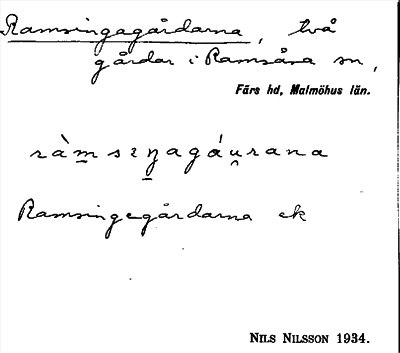 Ramsingagårdarna, två
gårdar i Ramsåsa sn,
Färs hd, Malmöhus län.
ràm̲sıŋ̲agáu̯rana
Ramsingegårdarna ek
NILS NILSSON 1934.